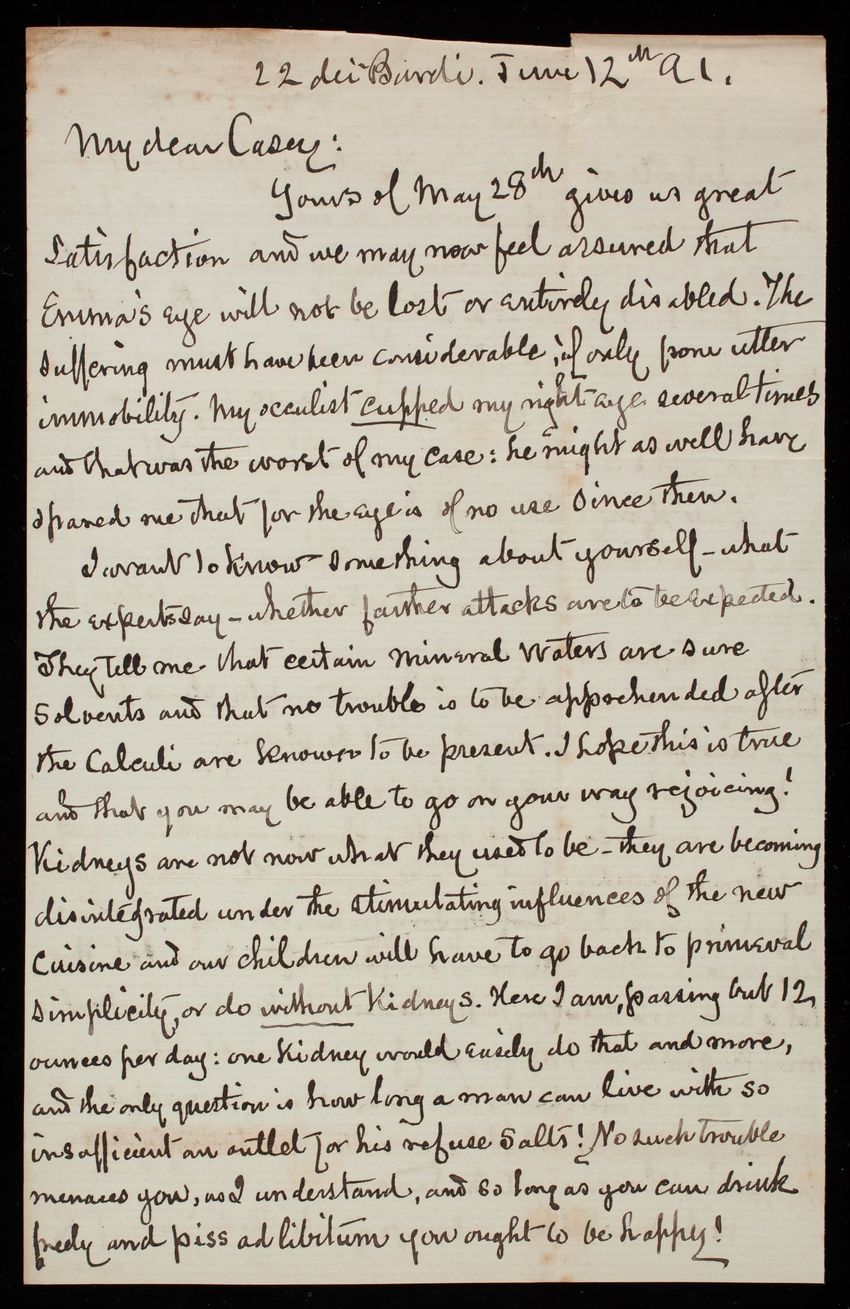 22 dei Bardi. June 12th 91.
My dear Casey:
Yours of May 28th gives us great
satisfaction and we may now feel assured that
Emma's eye will not be lost or entirely disabled. The
suffering must have been considerable, if only from utter
immobility. My occulist cupped my right eye several times
and that was the worst of my case: he might as well have
spared me that for the eye is of no use since then.
I want to know something about yourself - what
the experts say - whether farther attacks are to be expected.
They tell me that certain mineral waters are sure
solvents and that no trouble is to be apprehended after
the Calculi are known to be present. I hope this is true
and that you may be able to go on your way rejoicing!
Kidneys are not now what they used to be - they are becoming
disintegrated under the stimulating influences of the new
Cuisine and our children will have to go back to primeval
simplicity, or do without Kidneys. Here I am, passing but 12
ounces per day: one Kidney would easily do that and more,
and the only question is how long a man can live with so
insufficient an outlet for his refuse Salts! No such trouble
menaces you, as I understand, and so long as you can drink
freely and piss ad libitum you ought to be happy!